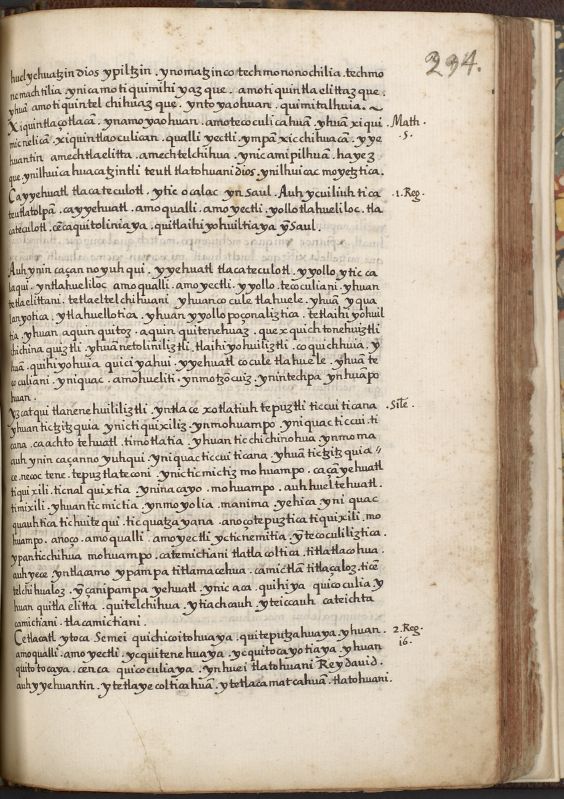 234.
huel yehuatzin dios ypiltzin . ynomatzinco techmononochilia . techmo
nemachtilia . ynic amo tiquimihi yazque . amo tiquintlaelittazque .
yhuā amo tiquintelchihuazque . ynto yaohuan . quimitalhuia . ~
Xiquintlaçotlacā . yn amo yaohuan . amotecoculicahuā . yhuā xiqui Math.
micnelicā . xiquintlaoculican . qualli yectli . ympā xicchihuacā . y ye 5.
huantin amechtlaelitta . amechtelchihua . ynic amipilhuā . hayez
que . yn ilhuicahuacatzintli teutl tlatohuani dios . yn ilhuicac moyetztica .
Ca yyehuatl tlacateculotl . ytic ocalac yn Saul . Auh yc uiliuhtica 1. Reg.
teutlatolpā . ca yyehuatl . amo qualli . amo yectli . yollotlahueliloc . tla
cateculotl . cēca quitoliniaya . quitlaihiyohuiltiaya yn Saul .
Auh yn in caçan no yuhqui . y yehuatl tlacateculotl . y yollo ytic ca
laqui . yn tlahueliloc amo qualli . amo yectli . y yollo . tecoculiani . yhuan
tetlaelittani . tetlaeltelchihuani yhuan cocule tlahuele . yhuā y qua
lanyotica . y tlahuellotica . yhuan y yollo poçonaliztica . tetlaihiyohuil
tia . yhuan aquin quitoz . aquin quitenehuaz . quexquich tonehuiztli
chichinaquiztli . yhuā netoliniliztli . tlaihiyohuiliztli . coquichhuia . y
huā . quihiyohuia quiciyahui . y yehuatl cocule tlahuele . yhuā te
coculiani . yn iquac . amo hueliti . ynmotzōcuiz . yn intechpa yn huāpo
huan .
Yzcatqui tlanenehuililiztli . yntla ce xotlatiuh tepuztli ticcuiticana . Sile.
yhuan tictzitzquia ynic tiquixiliz . yn mohuampo . yn iquac ticcuiti
cana . ca achto tehuatl . timotlatia . yhuan tic chichinohua yn moma
auh yn in caçanno yuhqui . yn iquac ticcuiticana . yhuā tictzitzquia //
ce . necoc tene . tepuztlateconi . ynic tic mictiz mohuampo . caçā yehuatl
tiquixili . ticnalquixtia . yn inacayo . mohuampo . auh huel tehuatl .
timixili . yhuan tic mictia . yn moyolia . manima . yehica yn iquac
quauhtica tichuitequi . tic quatzayana . anoço tepuztica tiquixili . mo
huampo . anoço . amo qualli . amo yectli yc ticnemitia . yn tecoculiliztica .
ypan ticchihua mohuampo . ca temictiani tlatlacoltica . titlatlacohua .
auh yece . yntlacamo ypampa titlamacehua . ca mictlā titlaçaloz . ticē
telchihualoz . yn çan ipampa yehuatl . ynic aca . quihiya quicoculia . y
huan quitlaelitta . quitelchihua . ytiachcauh . yteiccauh ca teichta
camictiani . tlacamictiani .
Ce tlacatl ytoca Semei quichicoitohuaya . quiteputzahuaya . yhuan . 2. Reg.
amo qualli . amo yectli . yc quitenehuaya . yc quitocayotiaya . yhuan 16.
quitotocaya . cenca quicoculiaya . yn huei tlatohuani Rey dauid .
auh yyehuantin . y tetlayecolticahuā . y tetlacamatcahuā . tlatohuani .